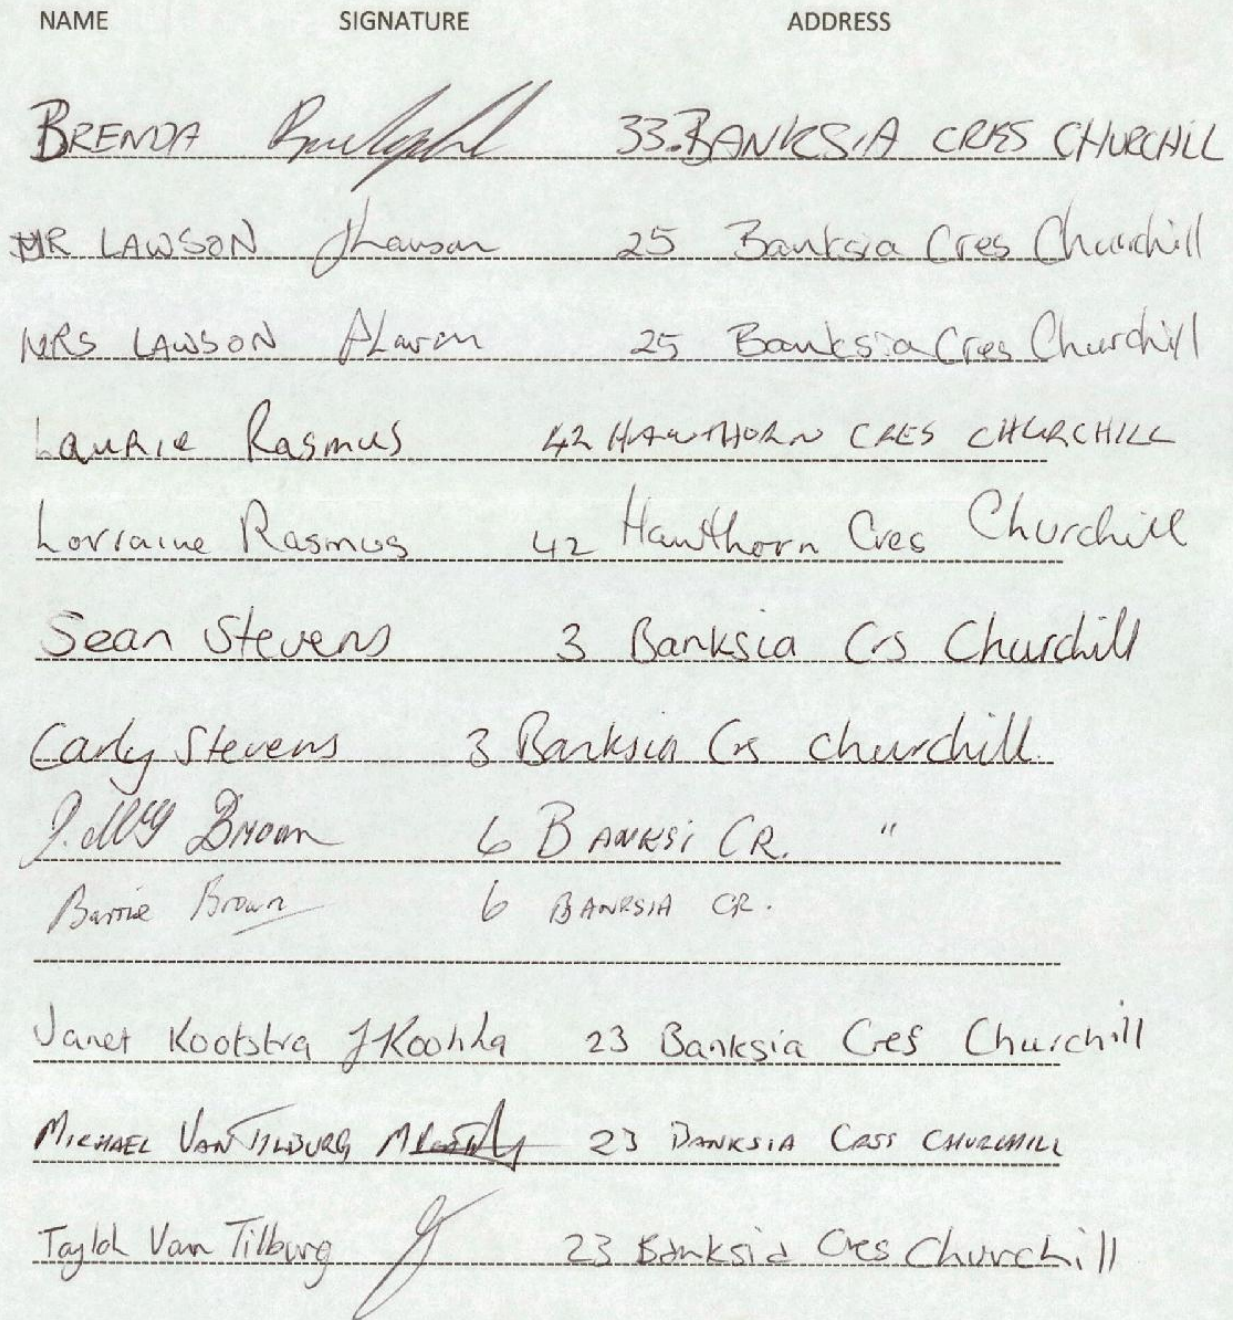 NAME SIGNATURE ADDRESS
BRENDA 33. BANKSIA CRES CHURCHILL
MR LAWSON JLawson 25 Banksia Cres Churchill
MRS LAWSON 25 Banksia Cres Churchill
Laurie Rasmus 42 HAWTHORN CRES CHURCHILL
Lorraine Rasmus 42 Hawthorn Cres Churchill
Sean Stevens 3 Banksia Crs Churchill
Carly Stevens 3 Banksia Crs churchill.
Brown 6 BANKSI CR. "
Barrie Brown 6 BANKSIA CR.
Janet Kootstra 23 Banksia Cres Churchill
MICHAEL VAN TILBURG 23 BANKSIA CRES CHURCHILL
Taylah Van Tilburg 23 Banksia Cres Churchill